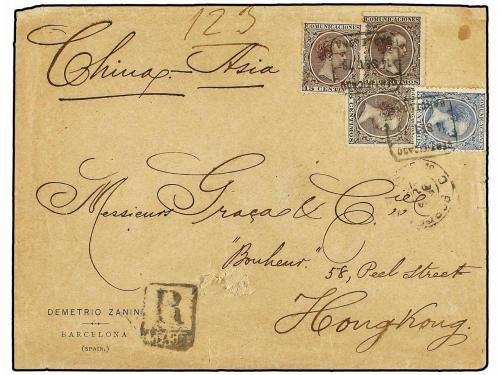 123
China - Asia
COMUNICACIONES
COMUNICACIONES
15 CENTIMOS
Messieurs Graça & Cie
"Bonheur" 58, Peel Street
Hongkong.
DEMETRIO ZANINI
BARCELONA
(SPAIN.)
R